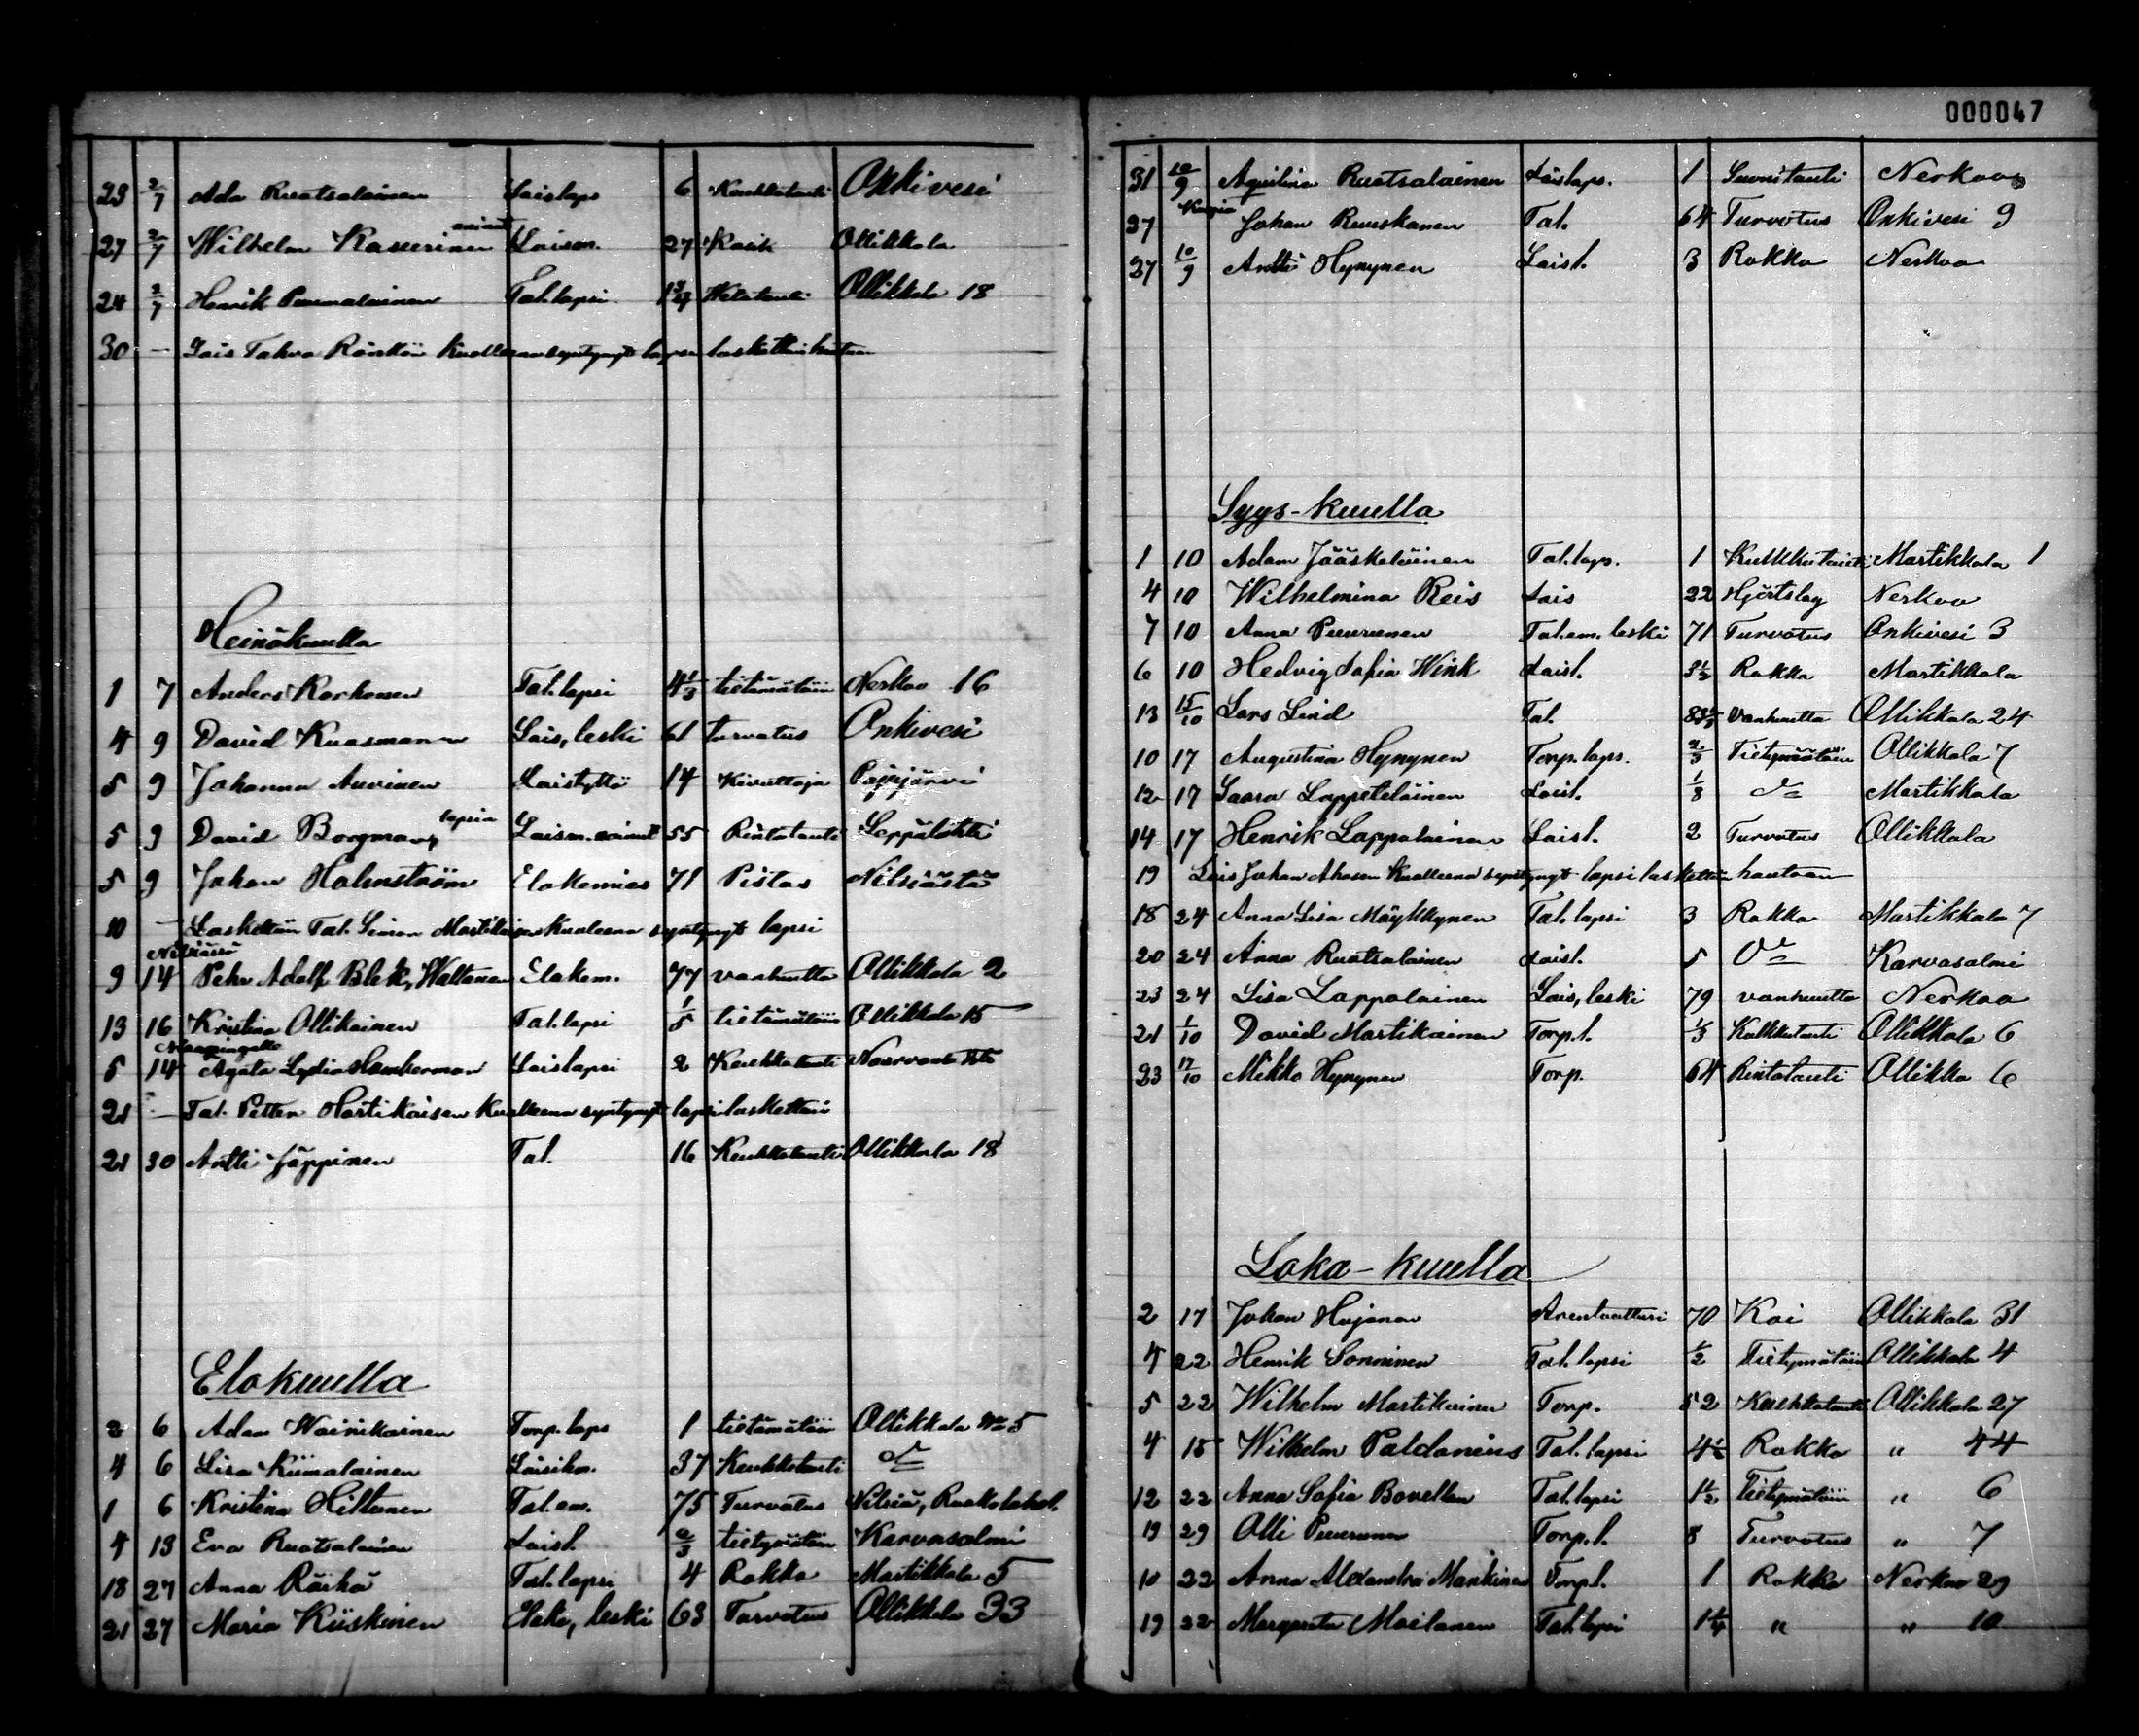 000047
23 2/7 Ada Ruotsalainen Loislaps 6 Keuhkotauti Onkivesi
27 2/7 Wilhelm Kasurinen Loism. 27 Ollikkala
24 2/7 Henrik Tal.lapsi Ollikkala 18
30 — Lois Kuolleena syntynyt lapsi laskettiin hautaan
Heinäkuulla
1 7 Anders Korhonen Tal.lapsi 4 1/3 tietämätöin Nerkoo 16
4 9 David Kuosmanen Lois, leski 61 turvotus Onkivesi
5 9 Johanna Auvinen Loistyttö 14 Kivuttoja Pajujärvi
lapsia
5 9 David Borgman Loism. 55 Rintatauti Leppälahti
5 9 Johan Holmström Elokemies 71 Pistos Nilsiästä
10 — Laskettiin Tal. Simon Kuoleena syntynyt lapsi
Nilsiässä
9 14 Pehr Adolf Blek, Wattanen Elakem. 77 vanhuutta Ollikkala 2
13 16 Kristina Ollikainen Tal.lapsi 1/5 tietämätöin Ollikkala 15
5 14 Agata Lydia Hamberman Loislapsi 2 Keuhkotauti
21 — Tal. Petter Hartikaisen Kuolleena syntynyt lapsi laskettiin
21 30 Antti Jäppinen Tal. 16 Keuhkotauti Ollikkala 18
Elokuulla
2 6 Adam Wainikainen Torp. laps 1 tietämätöin Ollikkala No 5
4 6 Lisa Kiimalainen Loisika. 37 Keuhkotauti do
1 6 Kristina Hiltunen Tal. em. 75 Turvotus Nilsiä,
4 13 Eva Ruotsalainen Loisl. 2/3 tietymätöin Karvasalmi
18 27 Anna Räihä Tal.lapsi 4 Rokko Martikkala 5
21 27 Maria Kiiskinen Elako, leski 63 Turvotus Ollikkala 33
31 10/9 Aqvilina Ruotsalainen Loislaps. 1 Suonitauti Nerkoo
27 Johan Ruuskanen Tal. 64 Turvotus Onkivesi 9
27 10/9 Antti Hynynen Loisl. 3 Rokko Nerkoo
Syys-kuulla
1 10 Adam Jääskeläinen Tal.laps. 1 Kulkkutauti Martikkala 1
4 10 Wilhelmina Reis Lois 22 Hjertslag Nerkoo
7 10 Anna Puurunen Tal.em. leski 71 Turvotus Onkivesi 3
6 10 Hedvig Sofia Wink Loisl. 3 1/2 Rokko Martikkala
13 15/10 Lars Lind Tal. Vanhuutta Ollikkala 24
10 17 Augustina Hynynen Torp. laps. 2/3 Tietymätöin Ollikkala 7
12 17 Saara Lappeteläinen Loisl. 1/8 do Martikkala
14 17 Henrik Lappalainen Loisl. 2 Turvotus Ollikkala
19 Lois Johan Ahosen Kuolleena syntynyt lapsi laskettiin hautaan
18 24 Anna Lisa Mäykkynen Tal. lapsi 3 Rokko Martikkala 7
20 24 Anna Ruotsalainen Loisl. 5 Do Karvasalmi
23 24 Lisa Lappalainen Lois, leski 79 vanhuutta Nerkoo
21 1/10 David Martikainen Torp.l. 1/3 Kulkkutauti Ollikkala 6
23 17/10 Mikko Hynynen Torp. 64 Rintatauti Ollikka 6
Loka-kuulla
2 17 Johan Hujanen Arentvatturi 70 Koi Ollikkala 31
4 22 Henrik Sonninen Tal. lapsi 1/2 Tietymätöin Ollikkala 4
5 22 Wilhelm Martikainen Torp. 52 Keuhkotauti Ollikkala 27
4 15 Wilhelm Paldanius Tal. lapsi 4 1/2 Rokko " 44
12 22 Anna Sofia Bovellan Tal.lapsi 1 1/2 Tietymätöin " 6
19 29 Olli Puurunen Torp.l. 8 Turvotus " 7
10 22 Anna Alexandra Mankinen Torpl. 1 Rokko Nerkoo 29
19 22 Margareta Moilanen Tal. lapsi 1 1/4 " " 10